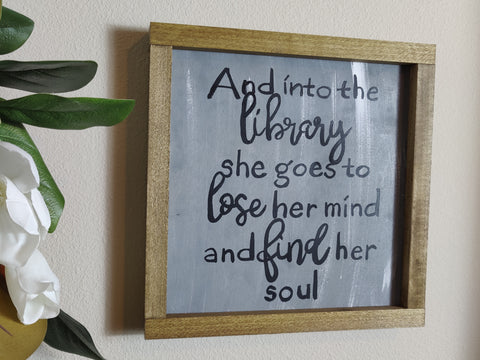 And into the
library
she goes to
lose her mind
and find her
soul